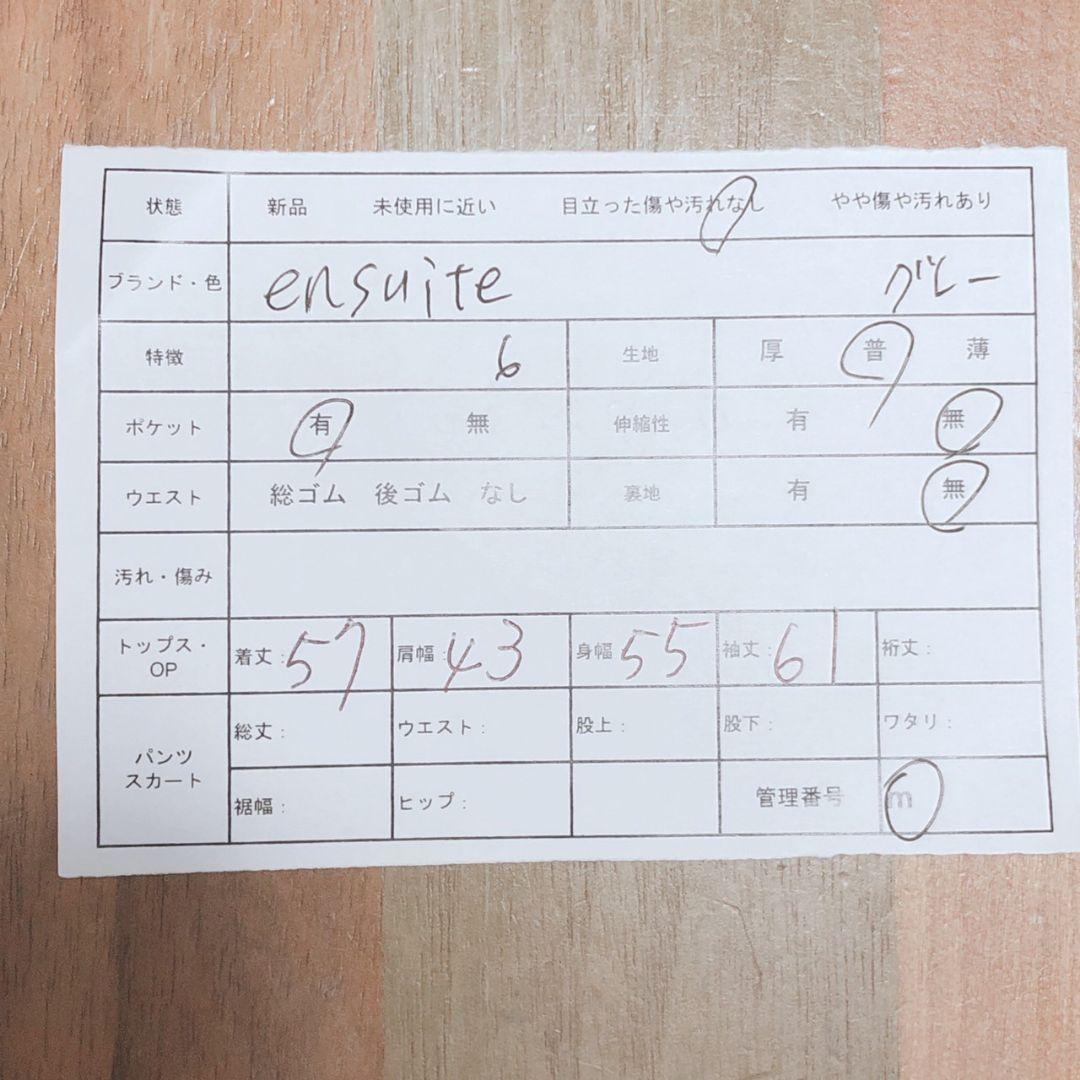 状態 新品 未使用に近い 目立った傷や汚れなし やや傷や汚れあり
ブランド・色 ensuite グレー
特徴 6 生地 厚 普 薄
ポケット 有 無 伸縮性 有 無
ウエスト 総ゴム 後ゴム なし 裏地 有 無
汚れ・傷み
トップス・OP 着丈:57 肩幅:43 身幅55 袖丈:61 裄丈:
パンツ スカート 総丈: ウエスト: 股上: 股下: ワタリ:
裾幅: ヒップ: 管理番号 m